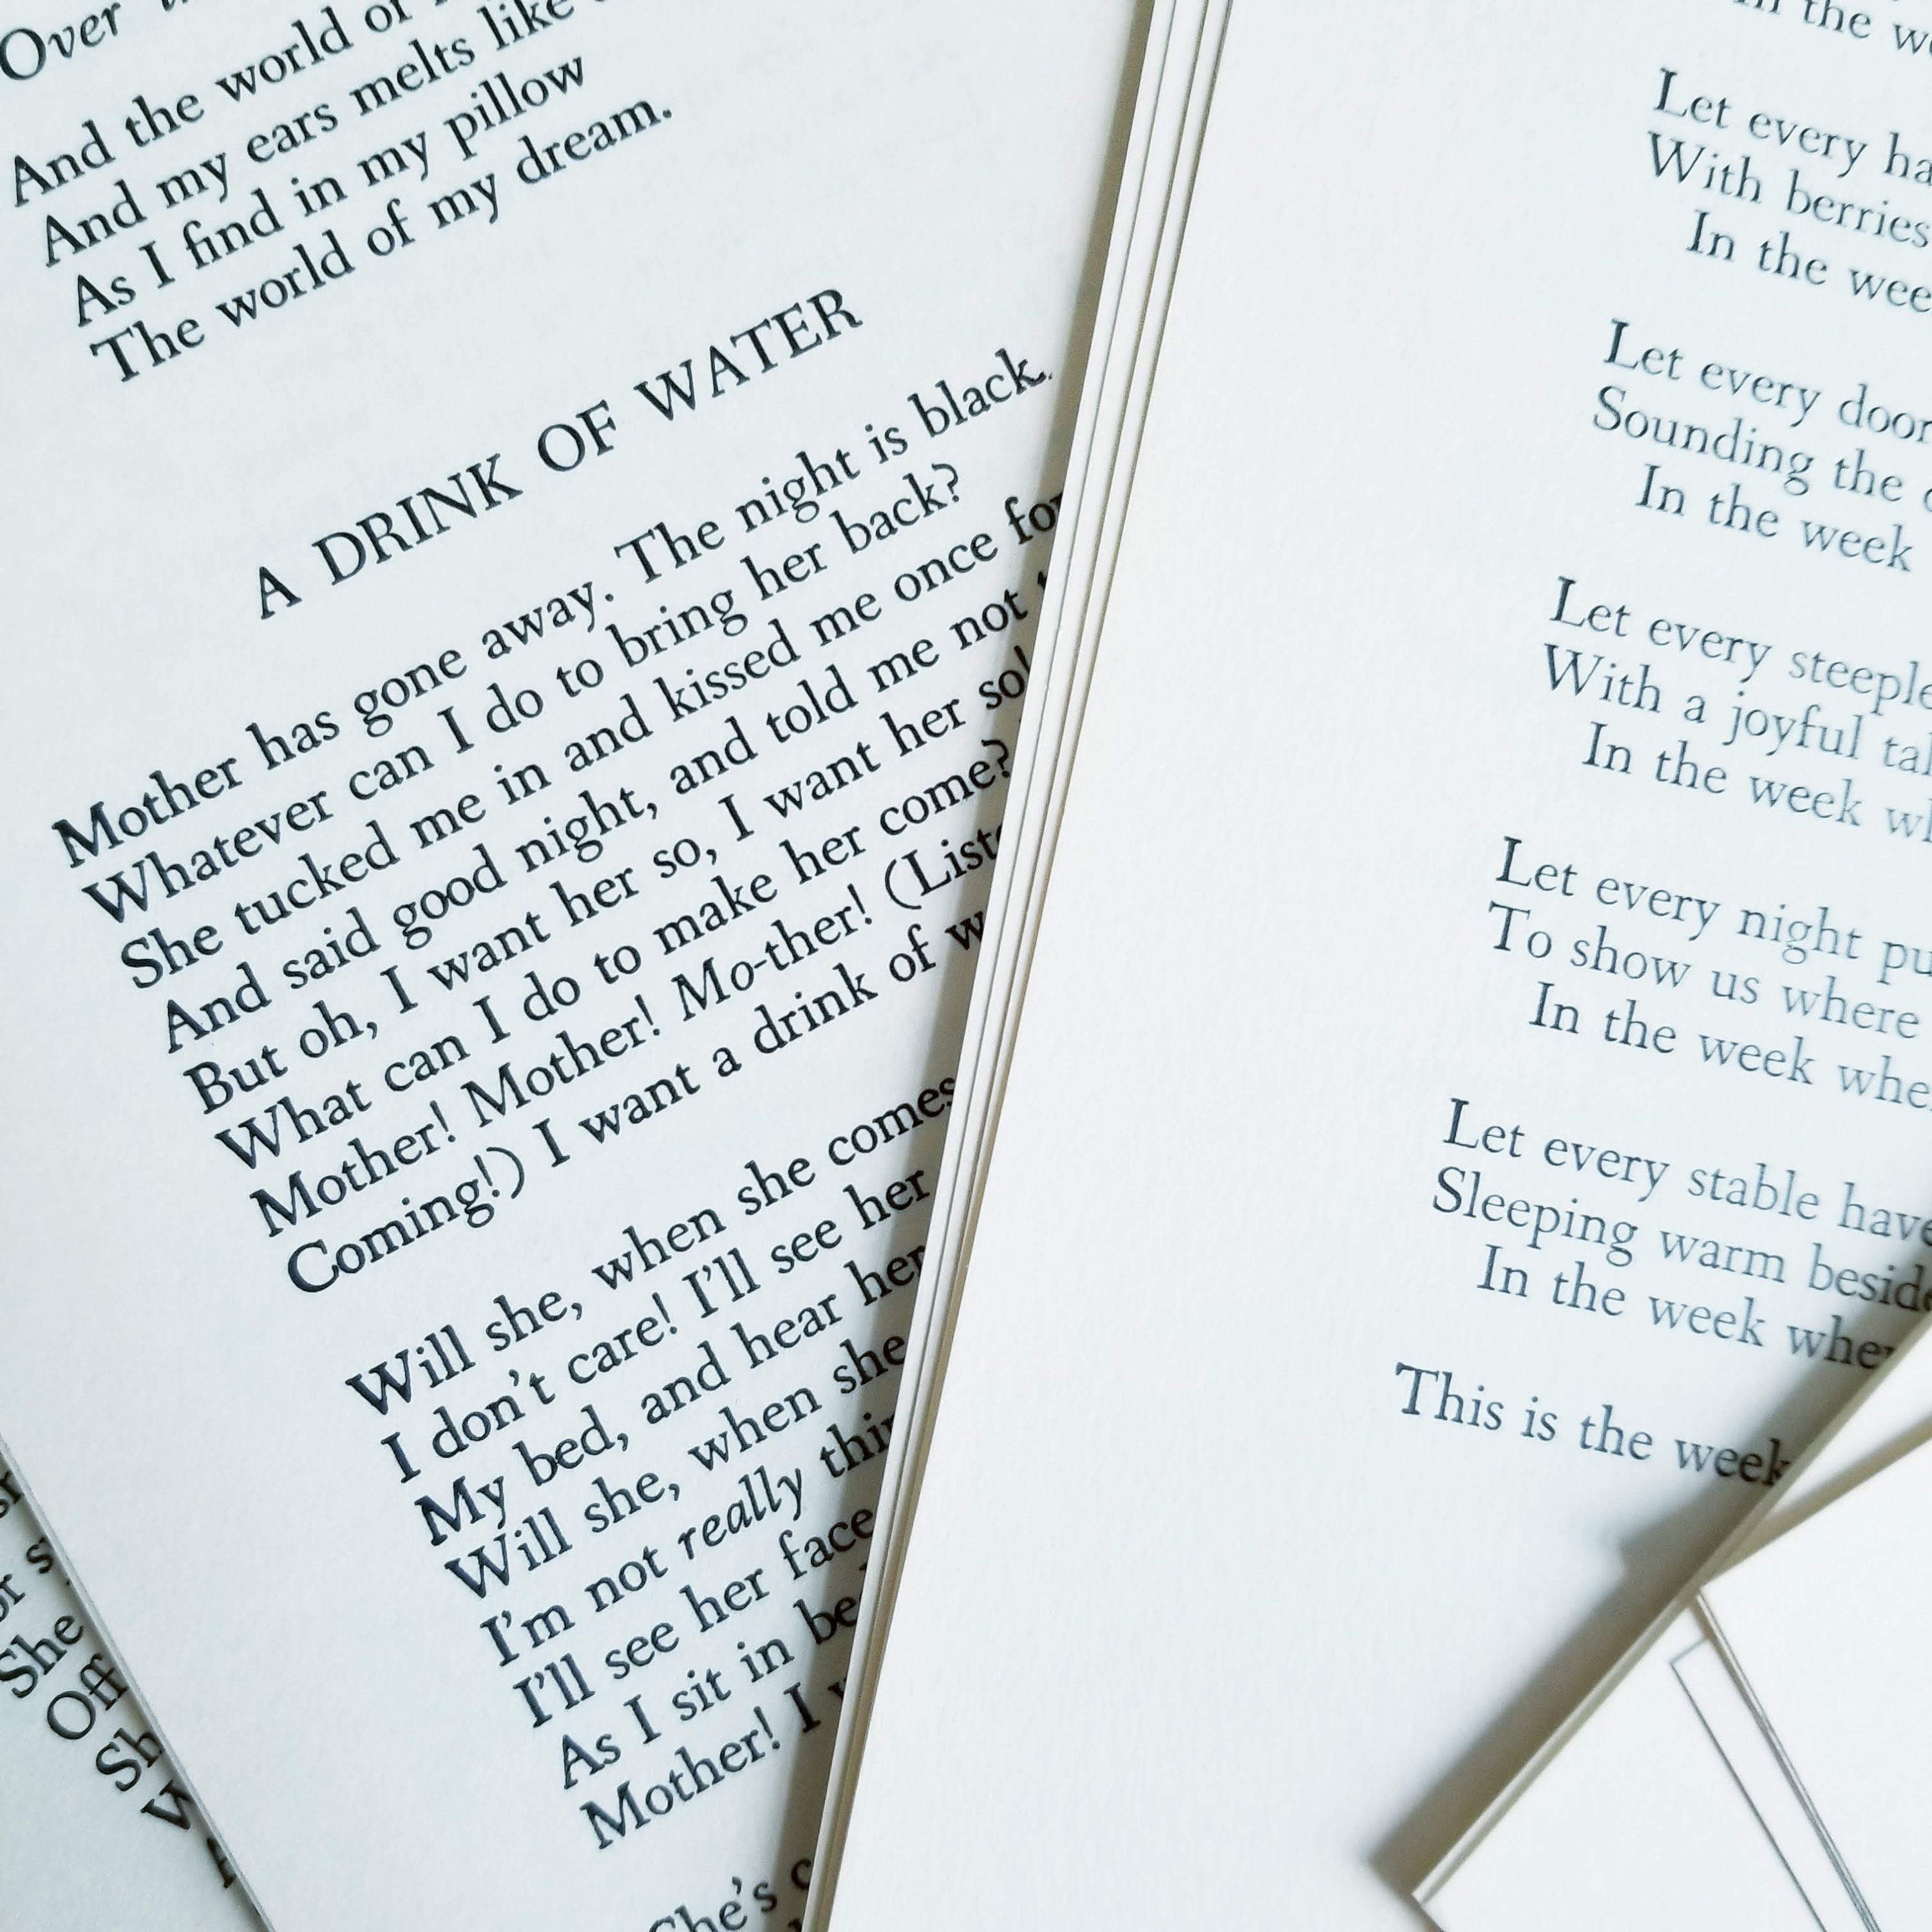 Over
And the world of
And my ears melts like
As I find in my pillow
The world of my dream.
A DRINK OF WATER
Mother has gone away. The night is black.
Whatever can I do to bring her back?
She tucked me in and kissed me once for
And said good night, and told me not
But oh, I want her so, I want her so!
What can I do to make her come?
Mother! Mother! Mo-ther! (List
Coming!) I want a drink of w
Will she, when she comes
I don't care! I'll see her
My bed, and hear her
Will she, when she
I'm not really thir
I'll see her face
As I sit in be
Mother! I
She's c
She
Off
Sh
in the we
Let every ha
With berries
In the wee
Let every door
Sounding the
In the week
Let every steeple
With a joyful tal
In the week wh
Let every night pu
To show us where
In the week whe
Let every stable have
Sleeping warm beside
In the week when
This is the week